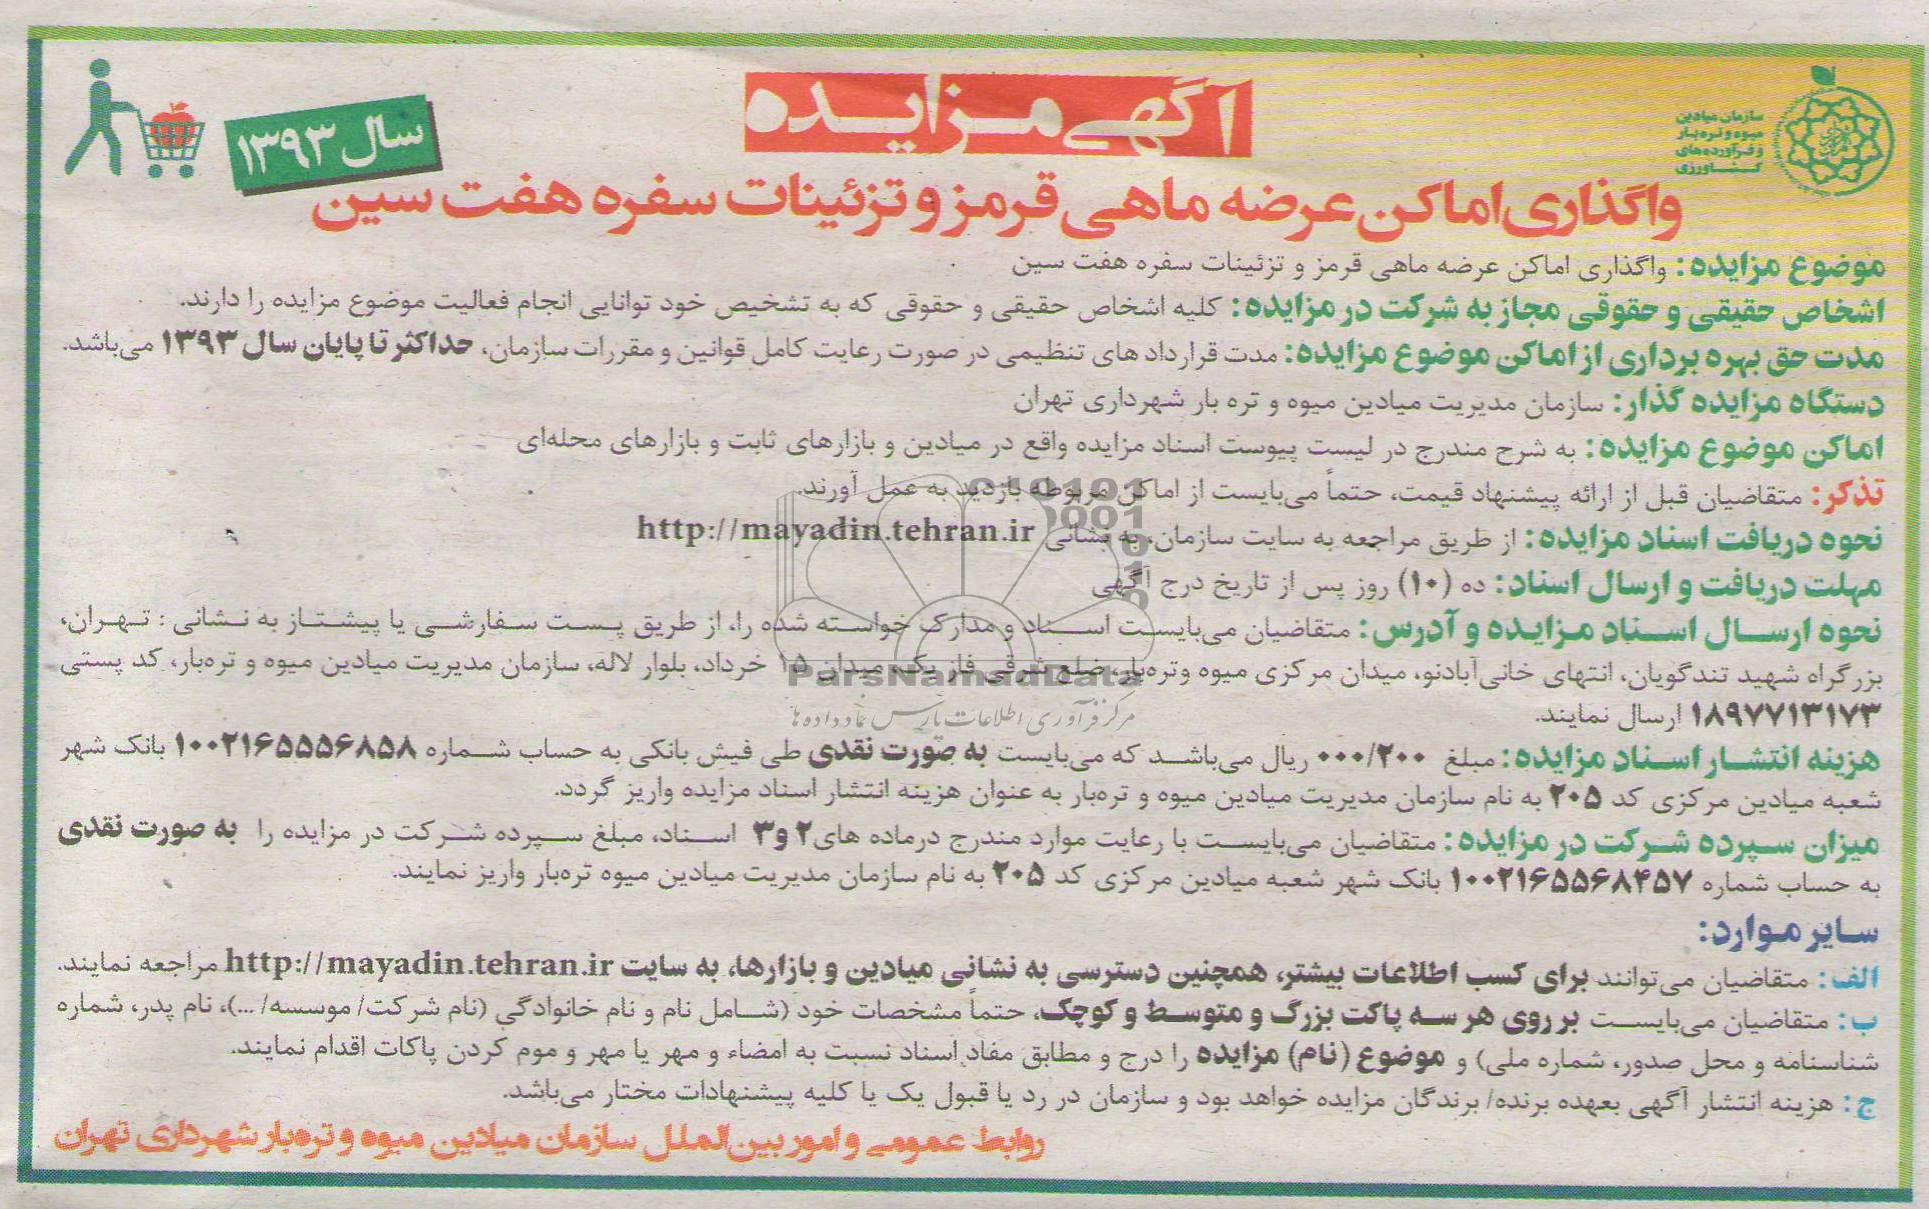 سازمان میادین
میوه و تره‌بار
و فرآورده‌های
کشاورزی
آگهی مزایده
سال ۱۳۹۳
واگذاری اماکن عرضه ماهی قرمز و تزئینات سفره هفت سین
موضوع مزایده: واگذاری اماکن عرضه ماهی قرمز و تزئینات سفره هفت سین
اشخاص حقیقی و حقوقی مجاز به شرکت در مزایده: کلیه اشخاص حقیقی و حقوقی که به تشخیص خود توانایی انجام فعالیت موضوع مزایده را دارند.
مدت حق بهره برداری از اماکن موضوع مزایده: مدت قرارداد های تنظیمی در صورت رعایت کامل قوانین و مقررات سازمان، حداکثر تا پایان سال ۱۳۹۳ می‌باشد.
دستگاه مزایده گذار: سازمان مدیریت میادین میوه و تره بار شهرداری تهران
اماکن موضوع مزایده: به شرح مندرج در لیست پیوست اسناد مزایده واقع در میادین و بازارهای ثابت و بازارهای محله‌ای
تذکر: متقاضیان قبل از ارائه پیشنهاد قیمت، حتماً می‌بایست از اماکن مربوطه بازدید به عمل آورند.
نحوه دریافت اسناد مزایده: از طریق مراجعه به سایت سازمان، به نشانی http://mayadin.tehran.ir
مهلت دریافت و ارسال اسناد: ده (۱۰) روز پس از تاریخ درج آگهی
نحوه ارسال اسناد مزایده و آدرس: متقاضیان می‌بایست اسناد و مدارک خواسته شده را، از طریق پست سفارشی یا پیشتاز به نشانی : تهران،
بزرگراه شهید تندگویان، انتهای خانی‌آبادنو، میدان مرکزی میوه وتره‌بار، ضلع شرقی فاز یک، میدان ۱۵ خرداد، بلوار لاله، سازمان مدیریت میادین میوه و تره‌بار، کد پستی
۱۸۹۷۷۱۳۱۷۳ ارسال نمایند.
ParsNamadData
مرکز فرآوری اطلاعات پارس نماد داده ها
هزینه انتشار اسناد مزایده: مبلغ ۲۰۰/۰۰۰ ریال می‌باشد که می‌بایست به صورت نقدی طی فیش بانکی به حساب شماره ۱۰۰۲۱۶۵۵۵۶۸۵۸ بانک شهر
شعبه میادین مرکزی کد ۲۰۵ به نام سازمان مدیریت میادین میوه و تره‌بار به عنوان هزینه انتشار اسناد مزایده واریز گردد.
میزان سپرده شرکت در مزایده: متقاضیان می‌بایست با رعایت موارد مندرج درماده های۲ و۳ اسناد، مبلغ سپرده شرکت در مزایده را به صورت نقدی
به حساب شماره ۱۰۰۲۱۶۵۵۶۸۴۵۷ بانک شهر شعبه میادین مرکزی کد ۲۰۵ به نام سازمان مدیریت میادین میوه تره‌بار واریز نمایند.
سایر موارد:
الف: متقاضیان می‌توانند برای کسب اطلاعات بیشتر، همچنین دسترسی به نشانی میادین و بازارها، به سایت http://mayadin.tehran.ir مراجعه نمایند.
ب: متقاضیان می‌بایست بر روی هر سه پاکت بزرگ و متوسط و کوچک، حتماً مشخصات خود (شامل نام و نام خانوادگی (نام شرکت/ موسسه/ ...)، نام پدر، شماره
شناسنامه و محل صدور، شماره ملی) و موضوع (نام) مزایده را درج و مطابق مفاد اسناد نسبت به امضاء و مهر یا مهر و موم کردن پاکات اقدام نمایند.
ج: هزینه انتشار آگهی بعهده برنده/ برندگان مزایده خواهد بود و سازمان در رد یا قبول یک یا کلیه پیشنهادات مختار می‌باشد.
روابط عمومی و امور بین‌الملل سازمان میادین میوه و تره‌بار شهرداری تهران